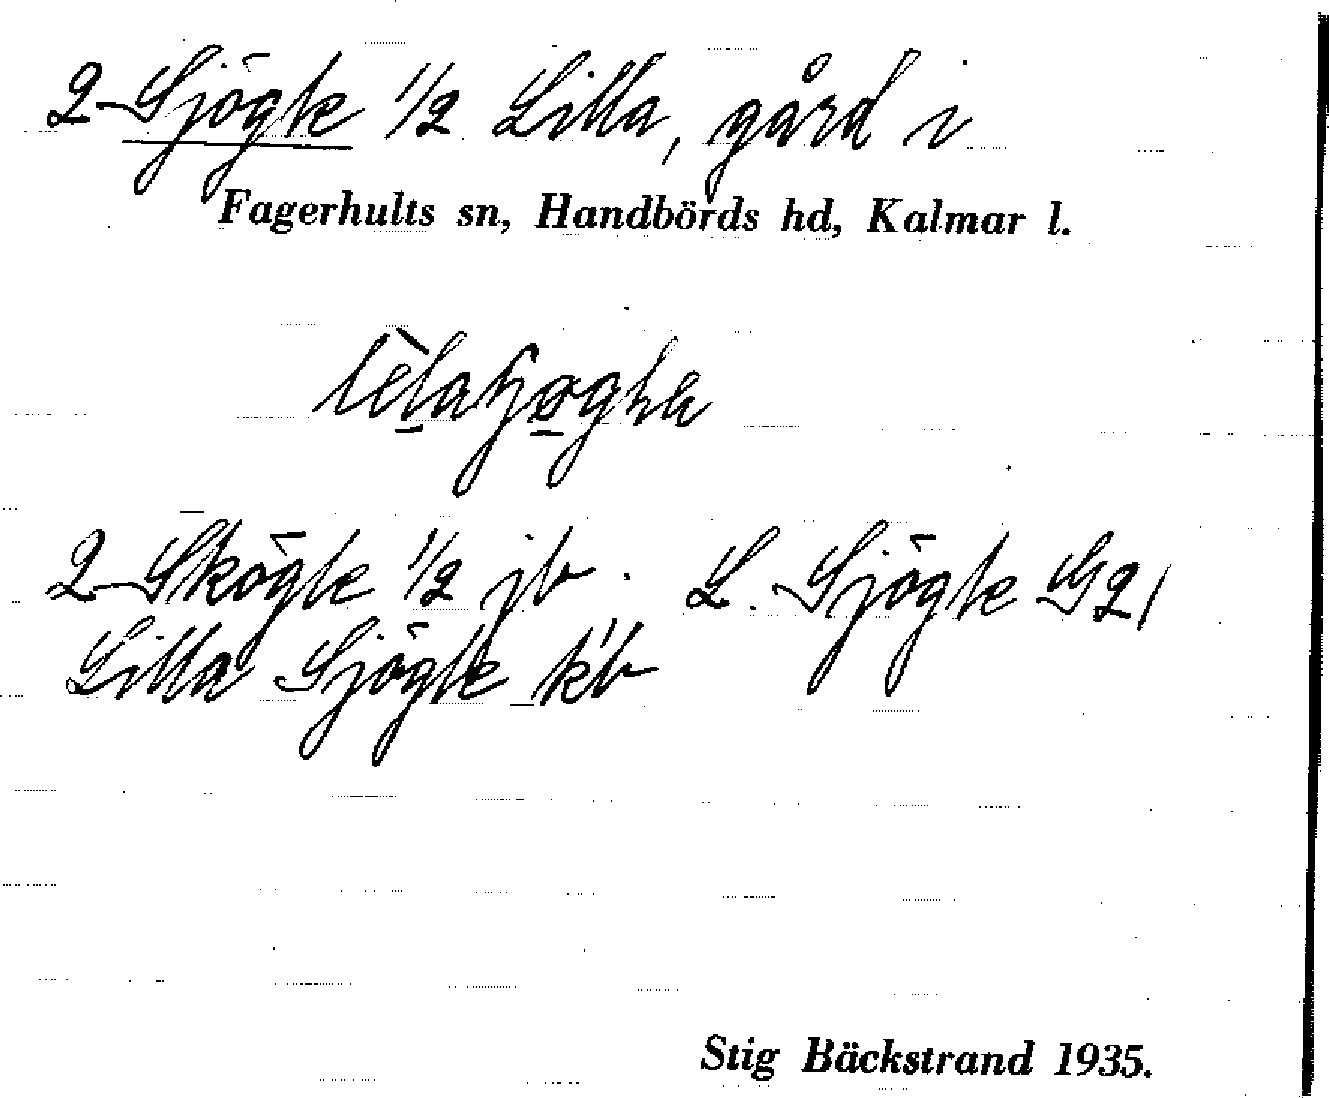 2 Sjögle 1/2 Lilla, gård i
Fagerhults sn, Handbörds hd, Kalmar l.
2 Skögle 1/2 jb. L. Sjögle G21
Lilla Sjögle kb
Stig Bäckstrand 1935.